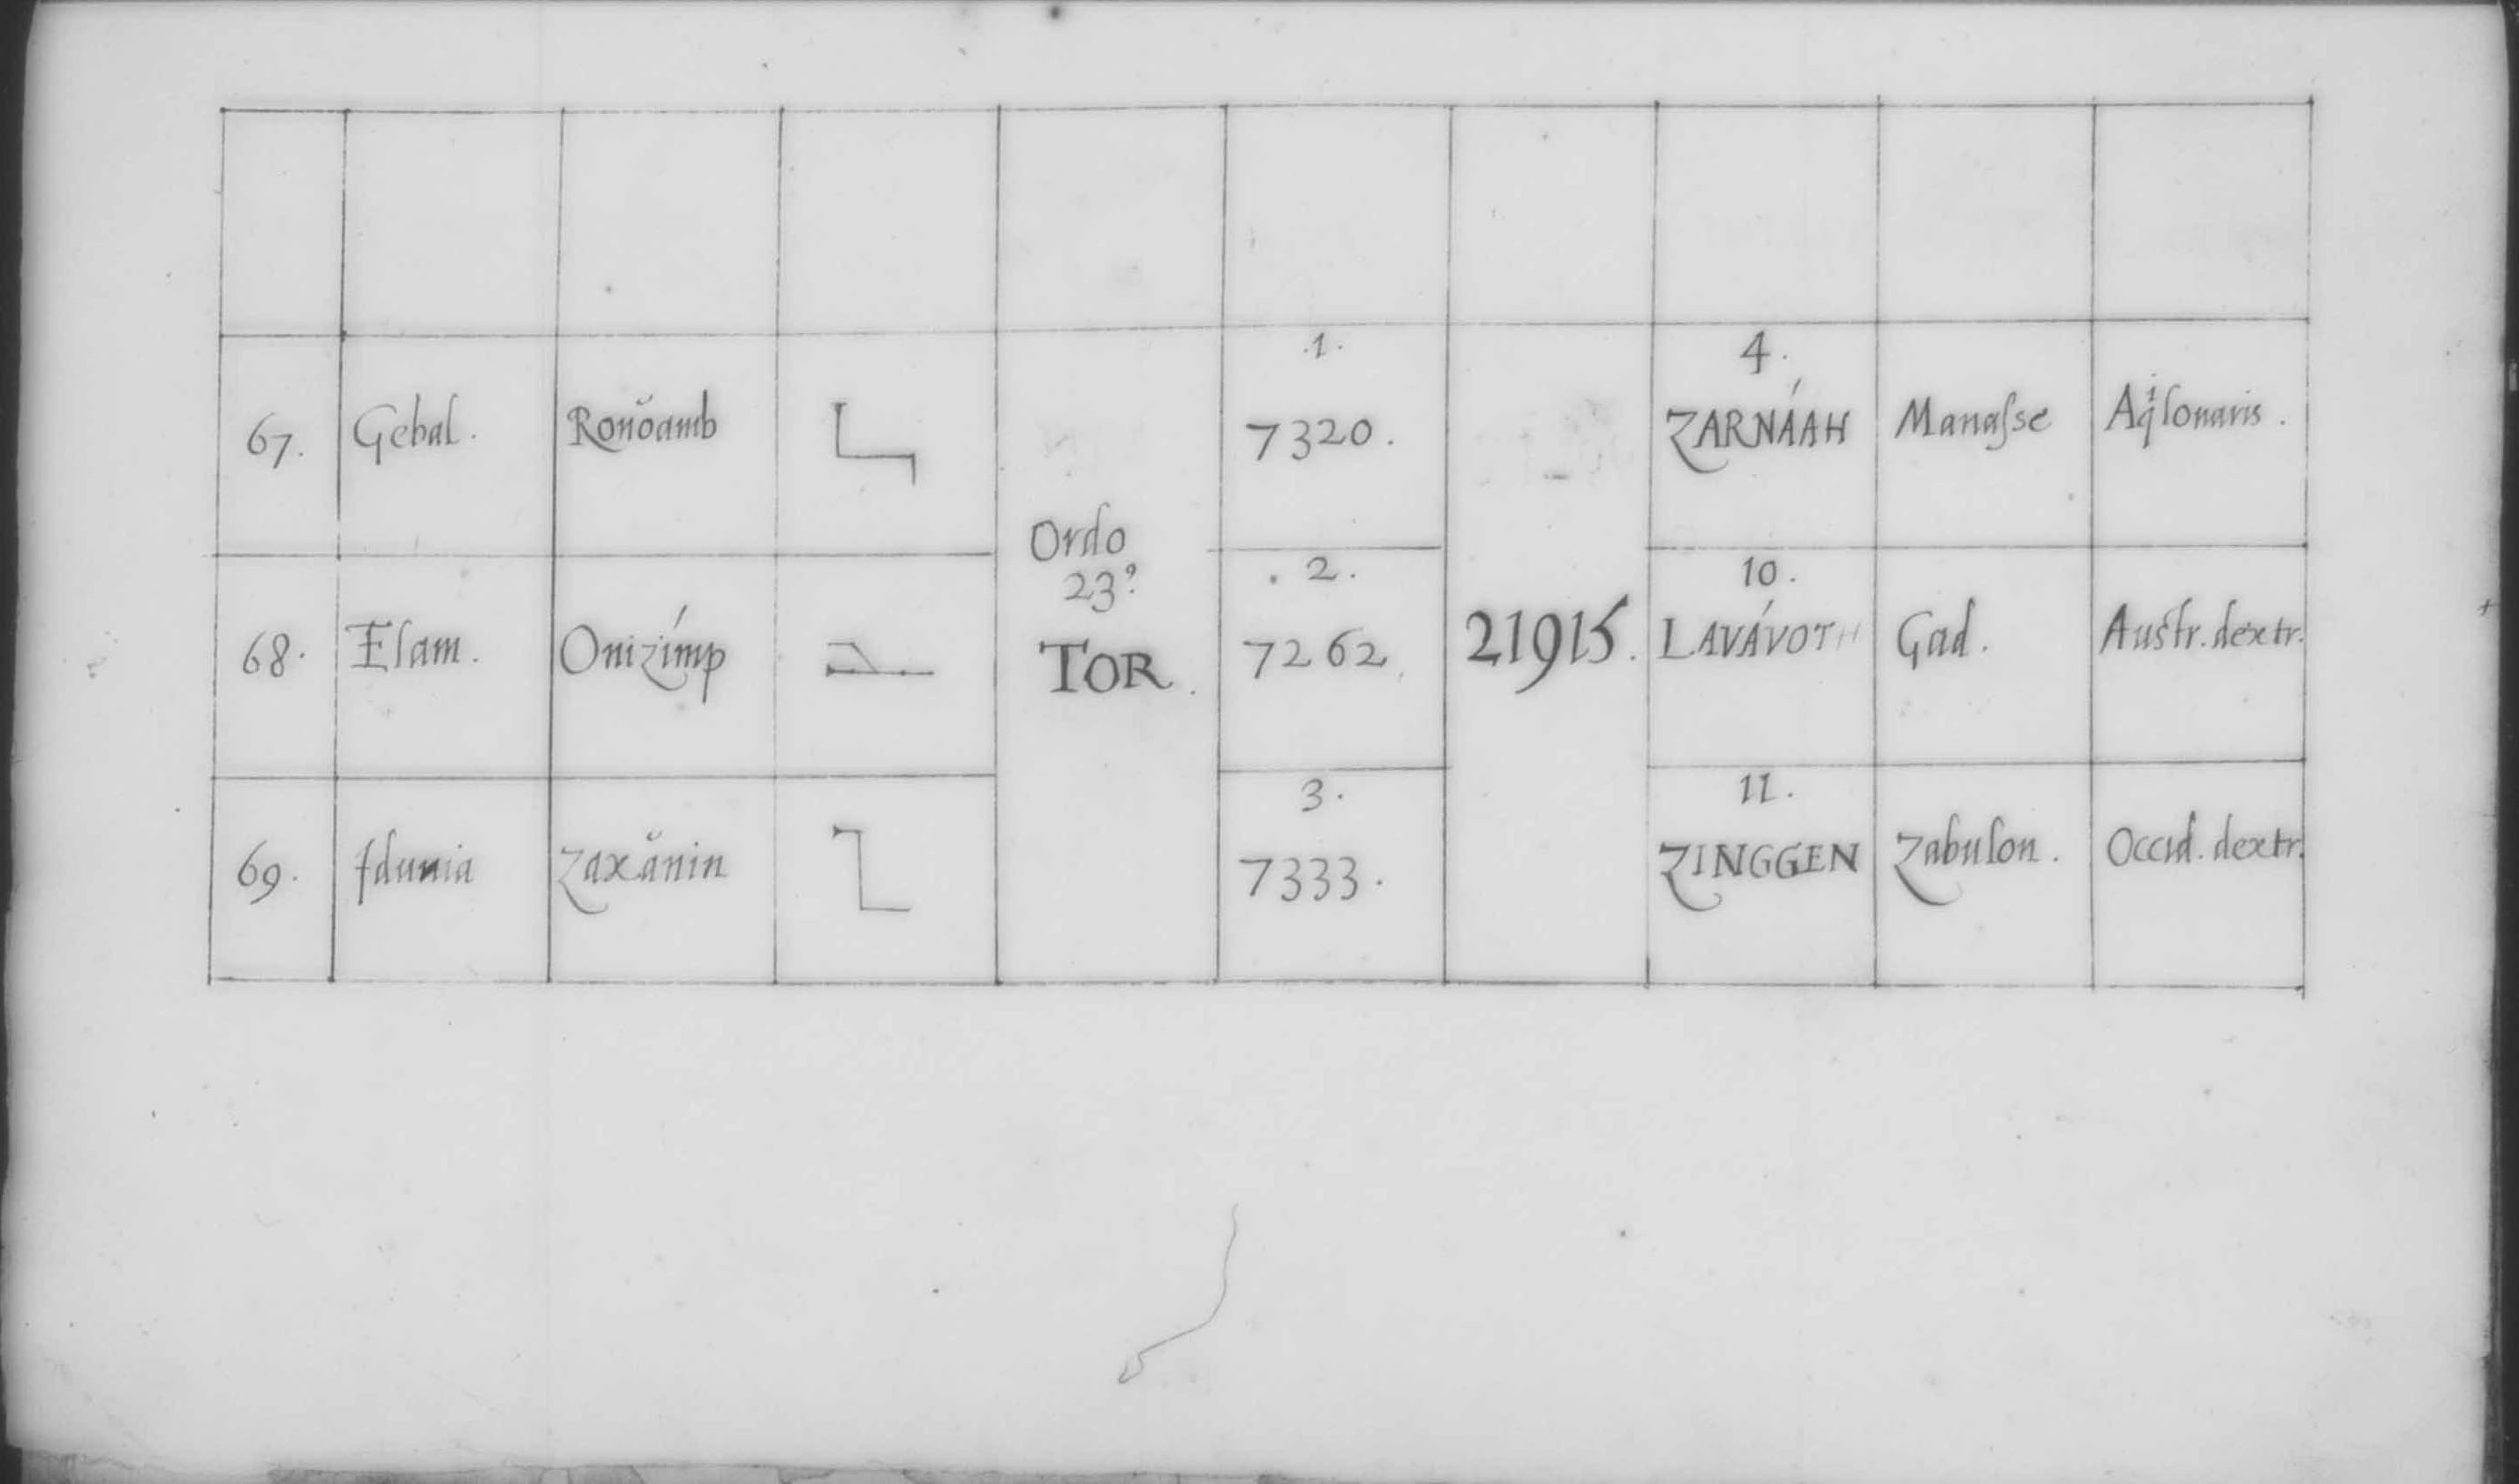 67. Gebal. Ronŏamb
Ordo
23º
TOR.
.1.
7320.
4.
ZARNÁAH Manaſse Aq̇ſonaris.
68. Elam. Onizímp
. 2.
7262.
21915.
10.
LAVÁVOTH Gad. Austr. dextr.
69. Idunia Zaxănin
3.
7333.
11.
ZINGGEN Zabulon. Occid. dextr.